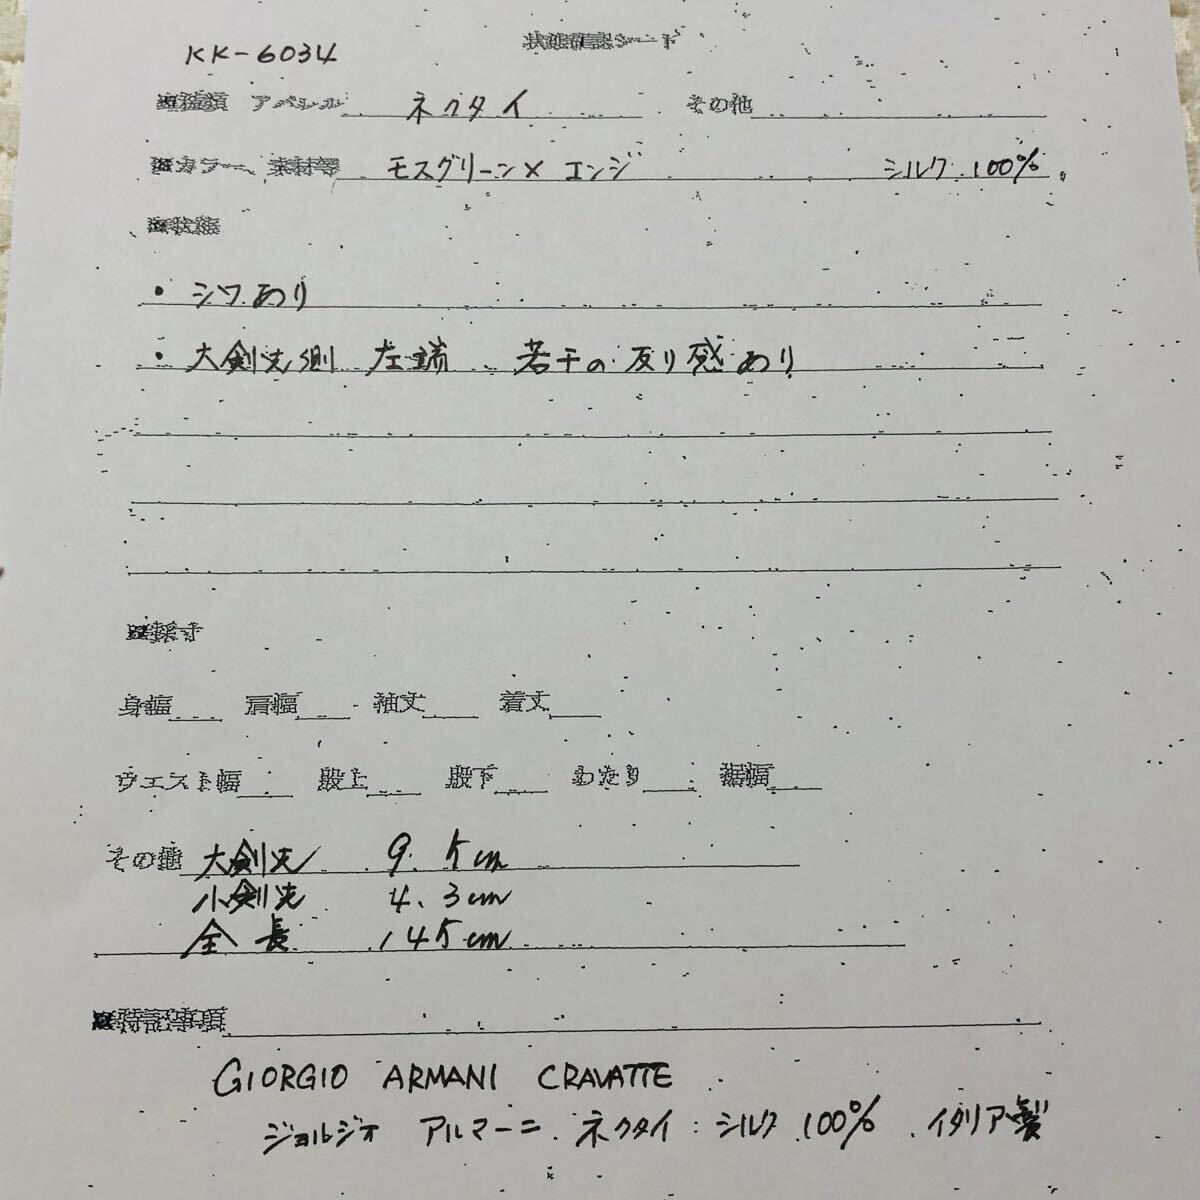 KK-6034
状態確認シート
※種類 アパレル ネクタイ その他
※カラー、素材等 モスグリーン×エンジ シルク 100%
※状態
・シワあり
・大剣先側 左端 若干の反り感あり
※採寸
身幅 肩幅 袖丈 着丈
ウエスト幅 股上 股下 わたり 裾幅
その他 大剣先 9.5cm
小剣先 4.3cm
全長 145cm
※特記事項
GIORGIO ARMANI CRAVATTE
ジョルジオ アルマーニ ネクタイ シルク 100% イタリア製